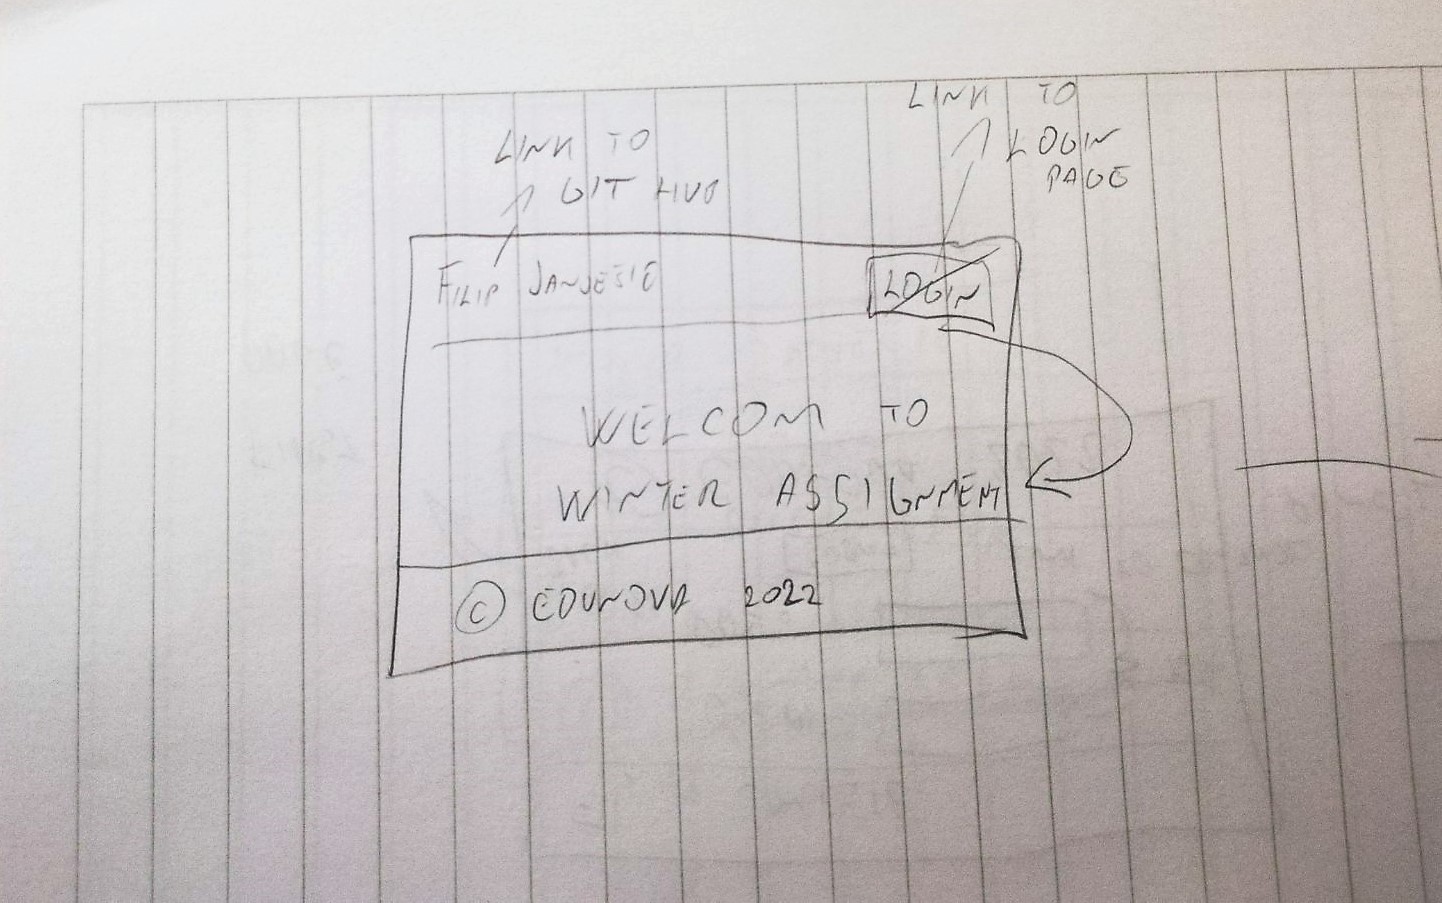 LINK TO
LOGIN
PAGE
LINK TO
GIT HUB
FILIP JANJEŠIĆ
LOGIN
WELCOM TO
WINTER ASSIGNMENT
© EDUNOVA 2022